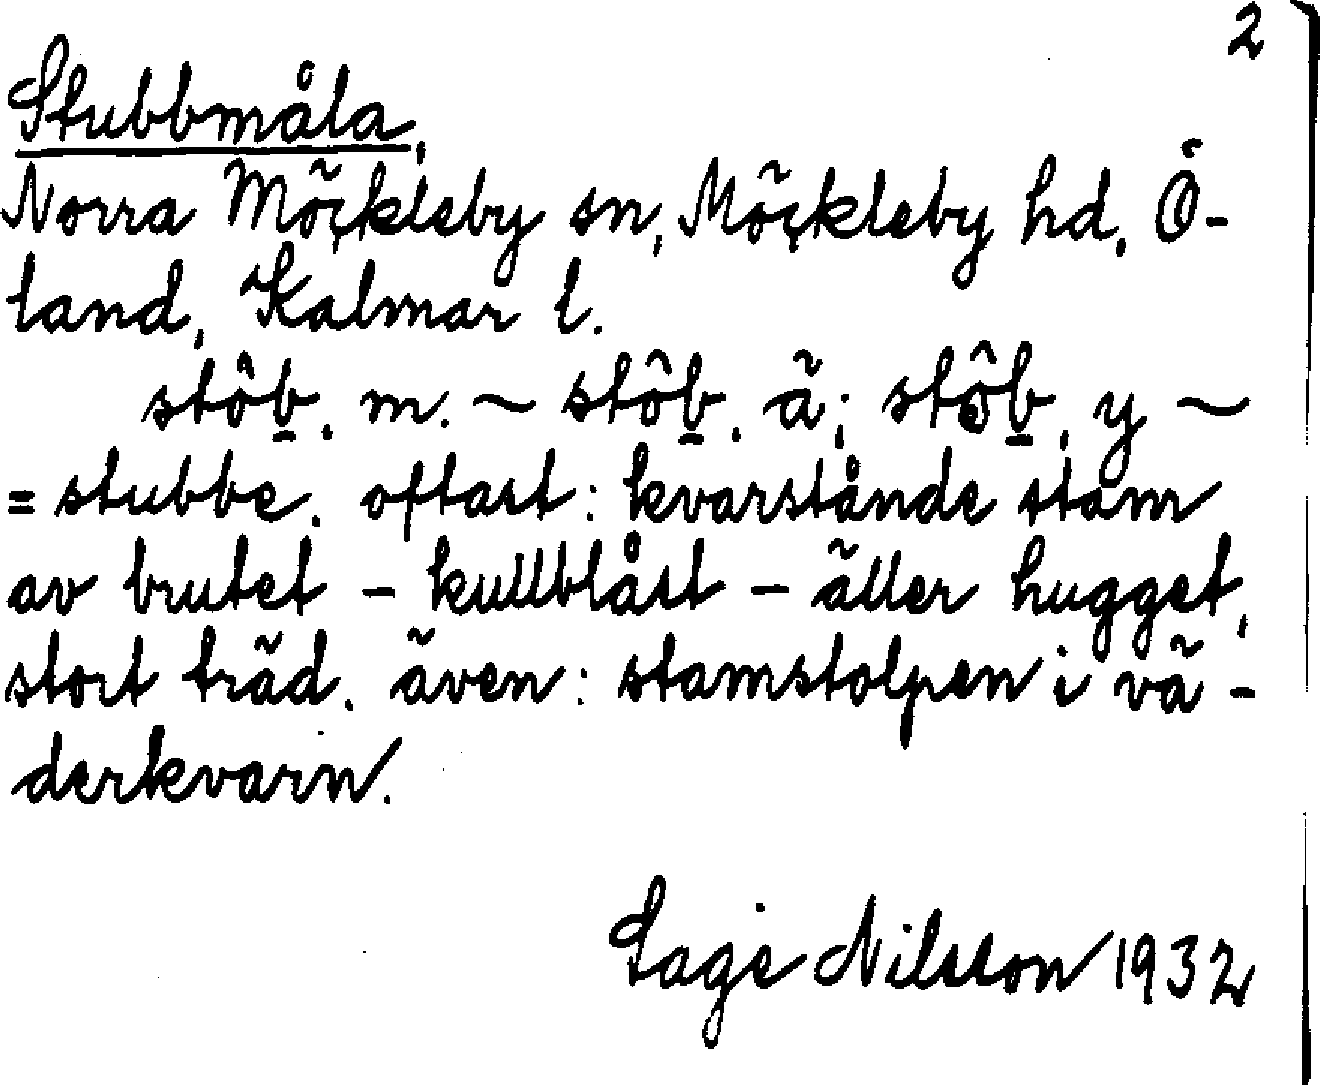 2
Stubbmåla,
Norra Möckleby sn, Möckleby hd, Ö-
land, Kalmar l.
stôb, m. ~ stôb, ä; stôb, y ~
= stubbe. oftast: kvarstånde stam
av brutet – kullblåst – äller hugget,
stort träd. även: stamstolpen i vä-
derkvarn.
Sage Nilsson 1932